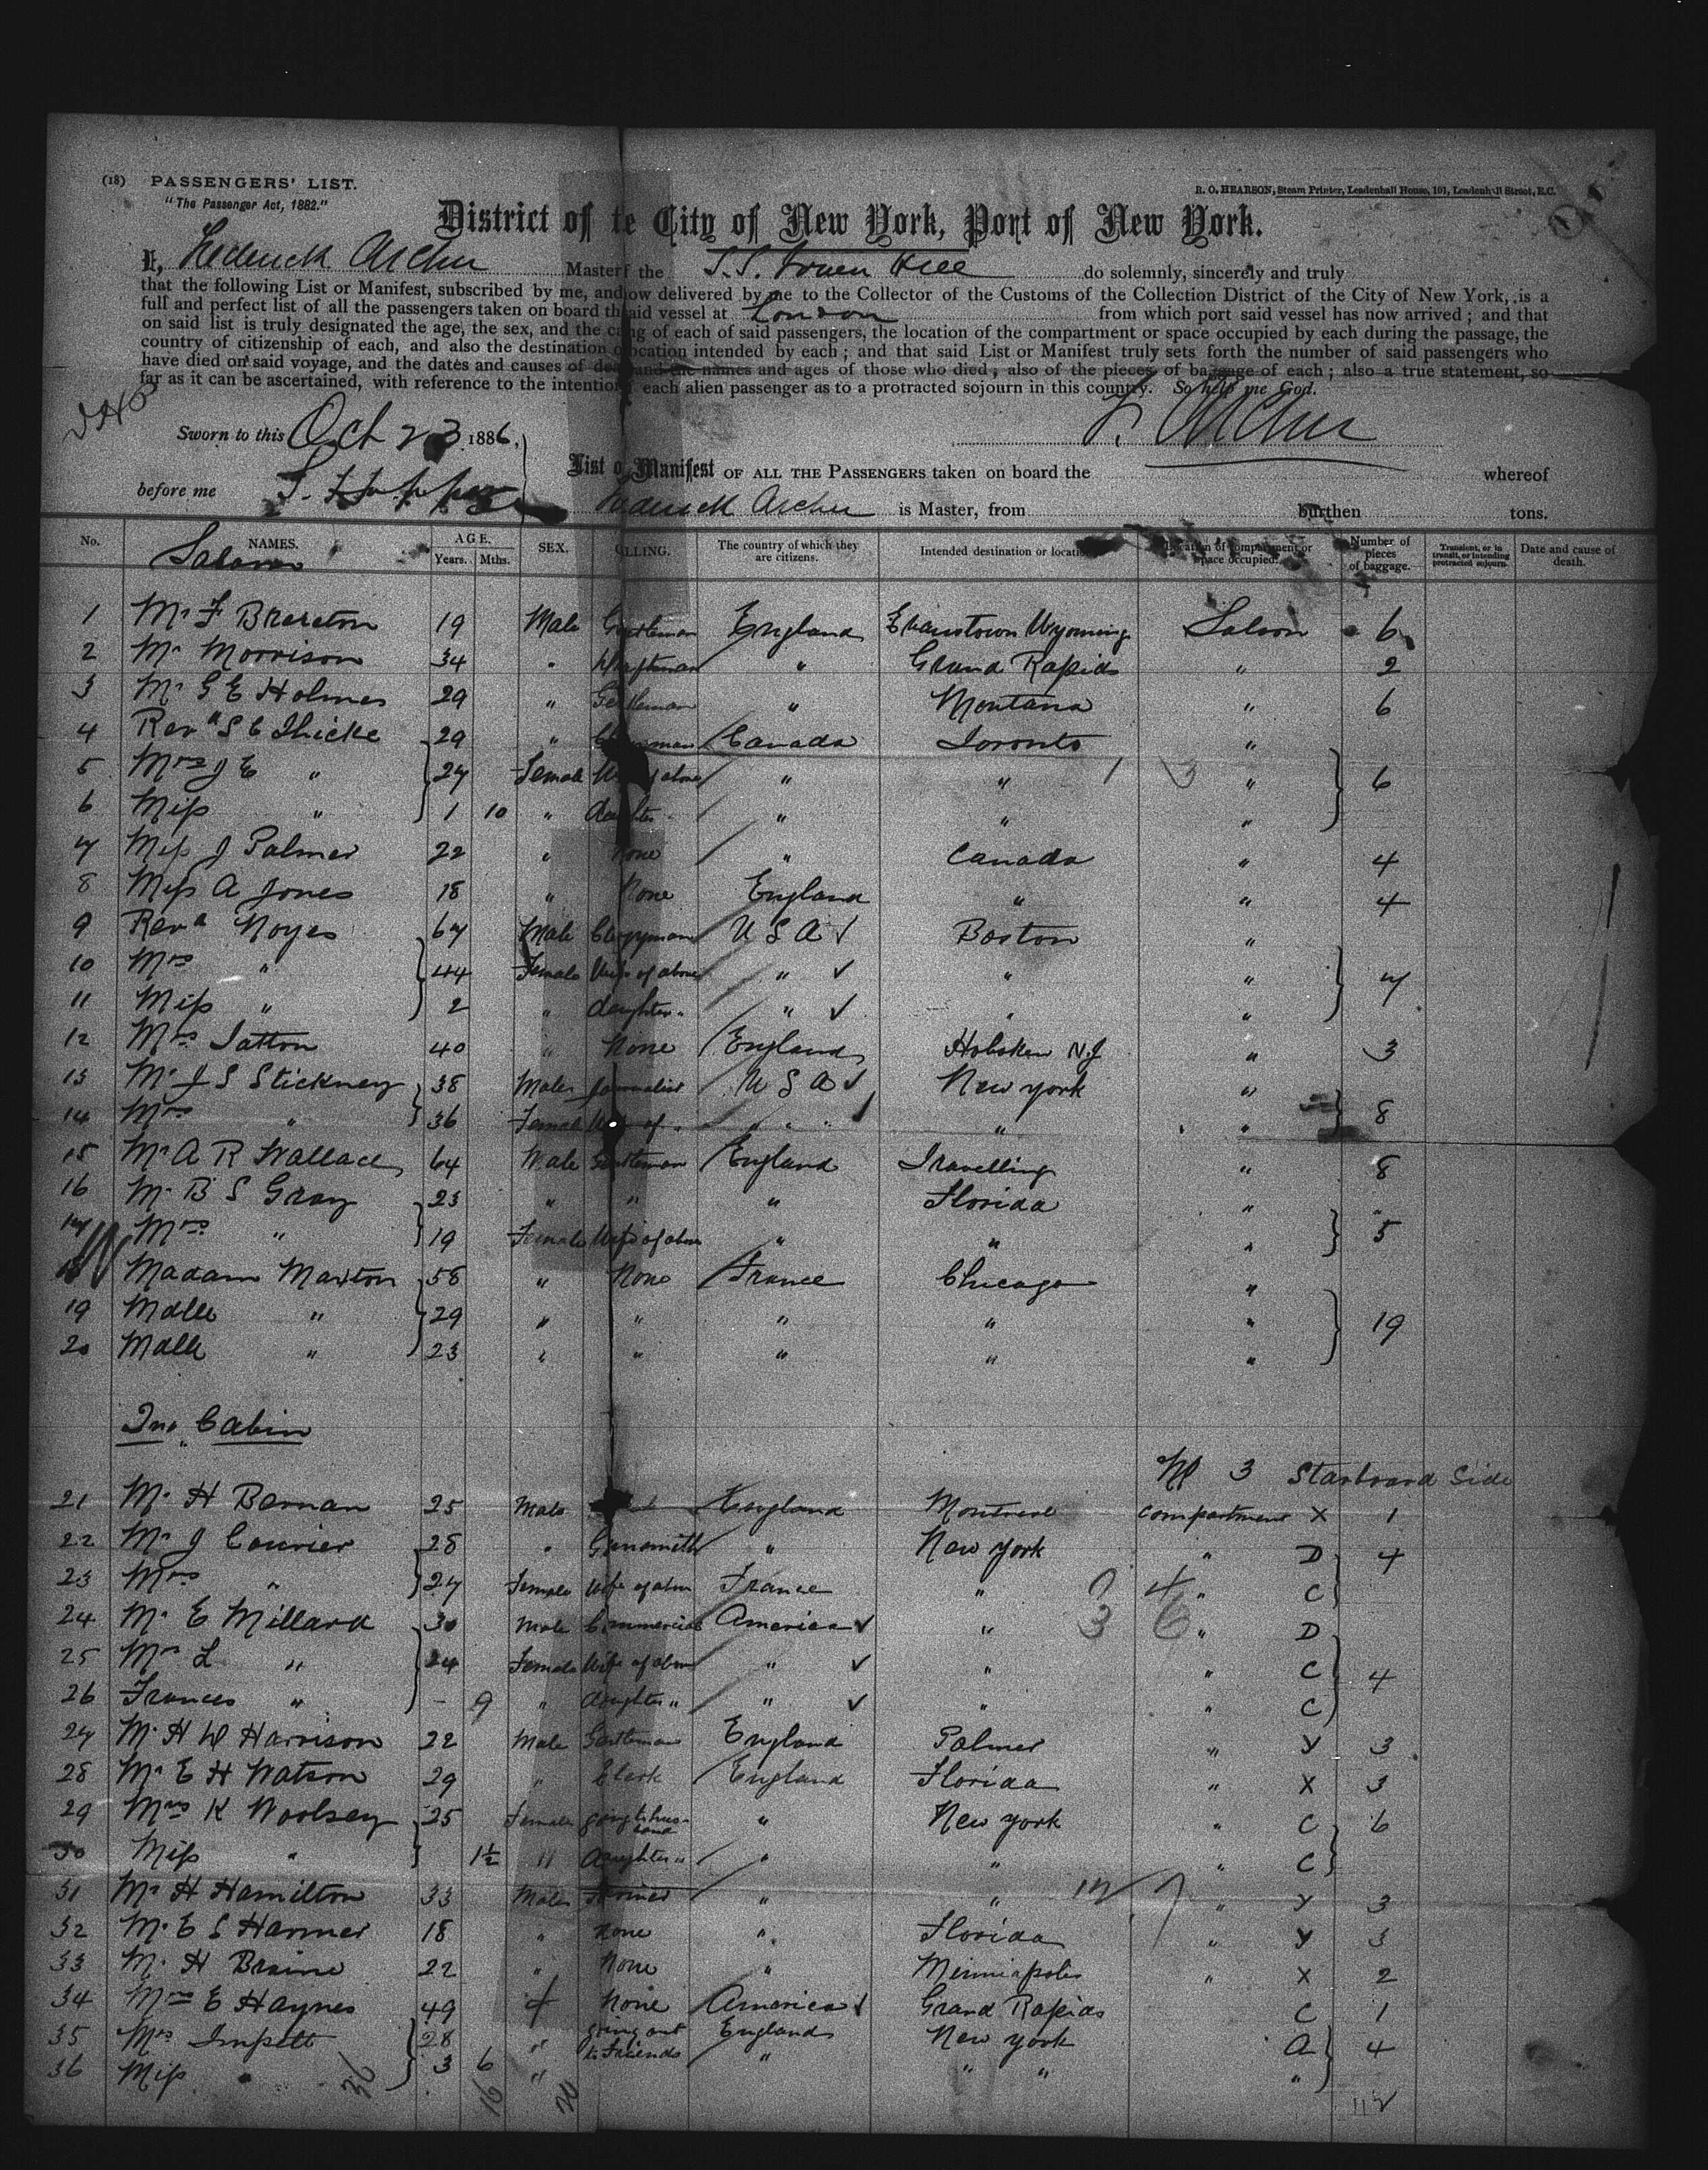 (18) PASSENGERS' LIST.
"The Passenger Act, 1882."
R. O. HEARSON, Steam Printer, Leadenhall House, 101, Leadenhall Street, E.C.
District of te City of New York, Port of New York.
I, Frederick Archer Master f the S.S. do solemnly, sincerely and truly
that the following List or Manifest, subscribed by me, and ow delivered by me to the Collector of the Customs of the Collection District of the City of New York, is a
full and perfect list of all the passengers taken on board th aid vessel at London from which port said vessel has now arrived; and that
on said list is truly designated the age, the sex, and the ca ng of each of said passengers, the location of the compartment or space occupied by each during the passage, the
country of citizenship of each, and also the destination o ocation intended by each; and that said List or Manifest truly sets forth the number of said passengers who
have died on said voyage, and the dates and causes of dea and the names and ages of those who died; also of the pieces of baggage of each; also a true statement, so
far as it can be ascertained, with reference to the intention f each alien passenger as to a protracted sojourn in this country. So help me God.
Sworn to this Oct 23 1886, F. Archer
List o Manifest OF ALL THE PASSENGERS taken on board the whereof
before me Frederick Archer is Master, from burthen tons.
No. NAMES. AGE. Years. Mths. SEX. LLING. The country of which they are citizens. Intended destination or location Location of compartment or space occupied. Number of pieces of baggage. Transient, or in transit, or intending protracted sojourn. Date and cause of death.
Saloon
1 Mr F Brereton 19 Male Gentleman England Evanstown Wyoming Saloon 6
2 Mr Morrison 34 " " Grand Rapids " 2
3 Mr G E Holmes 29 " Gentleman " Montana " 6
4 Revd S C 29 " Clergyman Canada Toronto "
5 Mrs J E " 27 Female Wife of above " " " 6
6 Miss " 1 10 " daughter " " " "
7 Miss J Palmer 22 " None " Canada " 4
8 Miss A Jones 18 " None England " " 4
9 Revd Noyes 67 Male Clergyman U S A Boston "
10 Mrs " 44 Female Wife of above " " " 7
11 Miss " 2 " daughter " " " "
12 Mrs Tatton 40 " None England Hoboken N.J " 3
13 Mr J S Stickney 38 Male Journalist U S A New York "
14 Mrs " 36 Female Wife of " " " " 8
15 Mr A R Wallace 64 Male Gentleman England Travelling " 8
16 Mr B S Gray 23 " " " Florida "
17 Mrs " 19 Female Wife of above " " " 5
18 Madam Marton 58 " None France Chicago "
19 Mdlle " 29 " " " " " 19
20 Mdlle " 23 " " " " "
2nd Cabin
No 3 Starboard Side
21 Mr H Barnan 25 Male England Montreal Compartment X 1
22 Mr J Courier 28 " Gunsmith " New York " D 4
23 Mrs " 27 Female Wife of above France " " C
24 Mr E Millard 30 Male Commercial America " " D
25 Mrs L " 24 Female Wife of above " " " C 4
26 Frances " - 9 " daughter " " " " C
27 Mr H W Harrison 22 Male Gentleman England Palmer " Y 3
28 Mr E H Watson 29 " Clerk England Florida " X 3
29 Mrs K Woolsey 25 Female going to husband " New York " C 6
30 Miss " 1½ " Daughter " " " " C
31 Mr H Hamilton 33 Male Farmer " " " Y 3
32 Mr E S Harmer 18 " None " Florida " Y 3
33 Mr H Braine 22 " None " Minneapolis " X 2
34 Mrs E Haynes 49 f None America Grand Rapids C 1
35 Mrs Impett 28 " going out to friends England New York A 4
36 Miss " 3 6 " " " " "
36 16 20 112